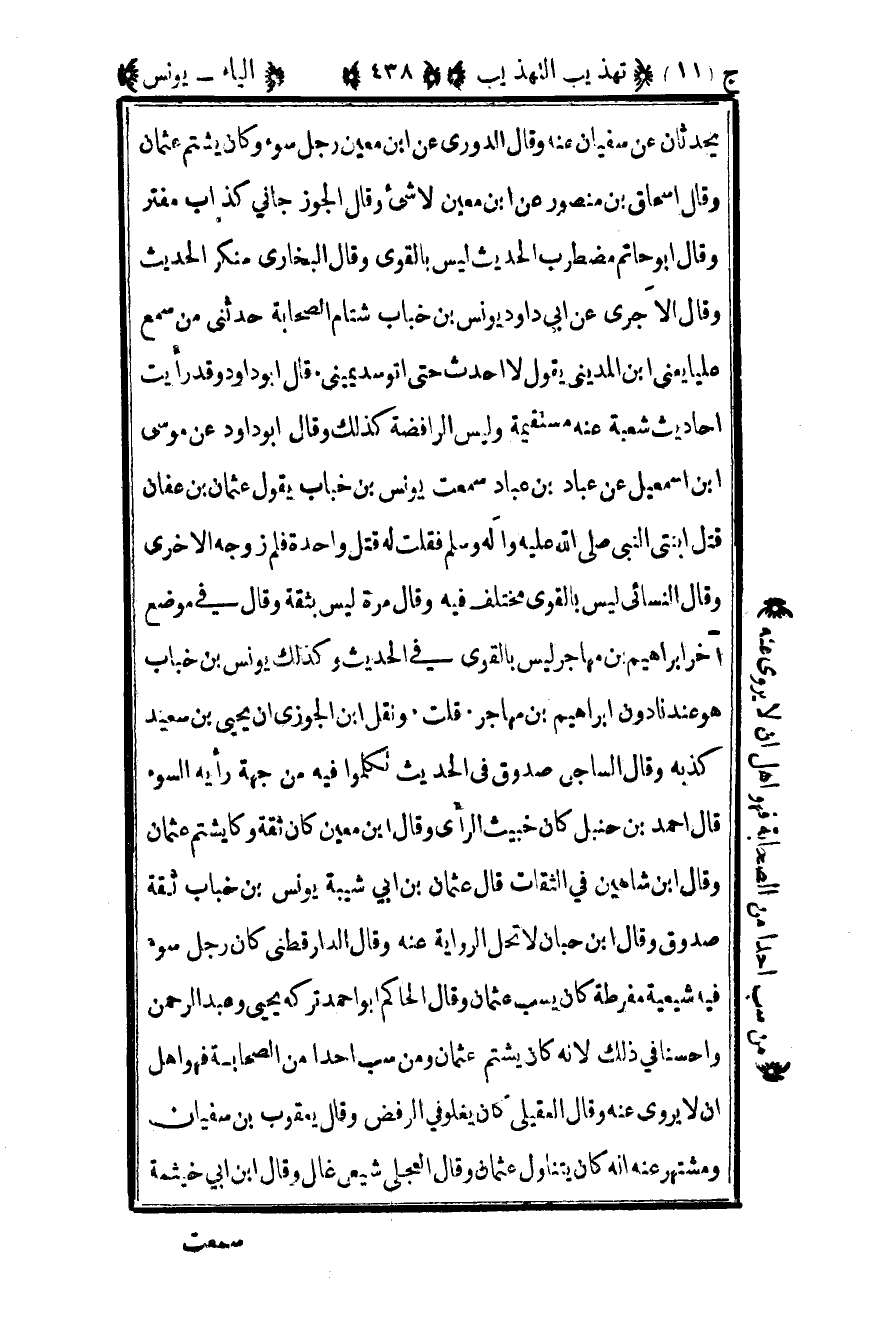 ج (١١) تهذيب التهذيب ٤٣٨ الياء ـ يونس
يحدثان عن سفيان عنه وقال الدورى عن ابن معين رجل سوء وكان يشتم عثمان
وقال اسحاق بن منصور عن ابن معين لاشئ وقال الجوز جاني كذاب مفتر
وقال ابو حاتم مضطرب الحديث ليس بالقوى وقال البخارى منكر الحديث
وقال الآجرى عن ابي داود يونس بن خباب شتام الصحابة حدثنى من سمع
عليا يعنى ابن المدينى يقول لا احدث حتى اتوسد يمينى . قال ابو داود وقد رأيت
احاديث شعبة عنه مستقيمة وليس الرافضة كذلك وقال ابو داود عن موسى
ابن اسمعيل عن عباد بن عباد سمعت يونس بن خباب يقول عثمان بن عفان
قتل ابنتى النبى صلى الله عليه وآله وسلم فقلت له قتل واحدة فلم زوجه الاخرى
وقال النسائى ليس بالقوى مختلف فيه وقال مرة ليس بثقة وقال في موضع
آخر ابراهيم بن مهاجر ليس بالقوى في الحديث وكذلك يونس بن خباب
هو عندنا دون ابراهيم بن مهاجر . قلت . ونقل ابن الجوزى ان يحيى بن سعيد
كذبه وقال الساجى صدوق فى الحديث تكلموا فيه من جهة رأيه السوء
قال احمد بن حنبل كان خبيث الرأى وقال ابن معين كان ثقة وكا يشتم عثمان
وقال ابن شاهين في الثقات قال عثمان بن ابي شيبة يونس بن خباب ثقة
صدوق وقال ابن حبان لا تحل الرواية عنه وقال الدارقطنى كان رجل سوء
فيه شيعية مفرطة كان يسب عثمان وقال الحاكم ابو احمد تركه يحيى وعبد الرحمن
واحسنا في ذلك لانه كان يشتم عثمان ومن سب احدا من الصحابة فهو اهل
ان لا يروى عنه وقال العقيلى كان يغلو في الرفض وقال يعقوب بن سفيان
ومشتهر عنه انه كان يتناول عثمان وقال العجلى شيعى غال وقال ابن ابي خيثمة
سمعت
من سب احدا من الصحابة فهو اهل ان لا يروى عنه